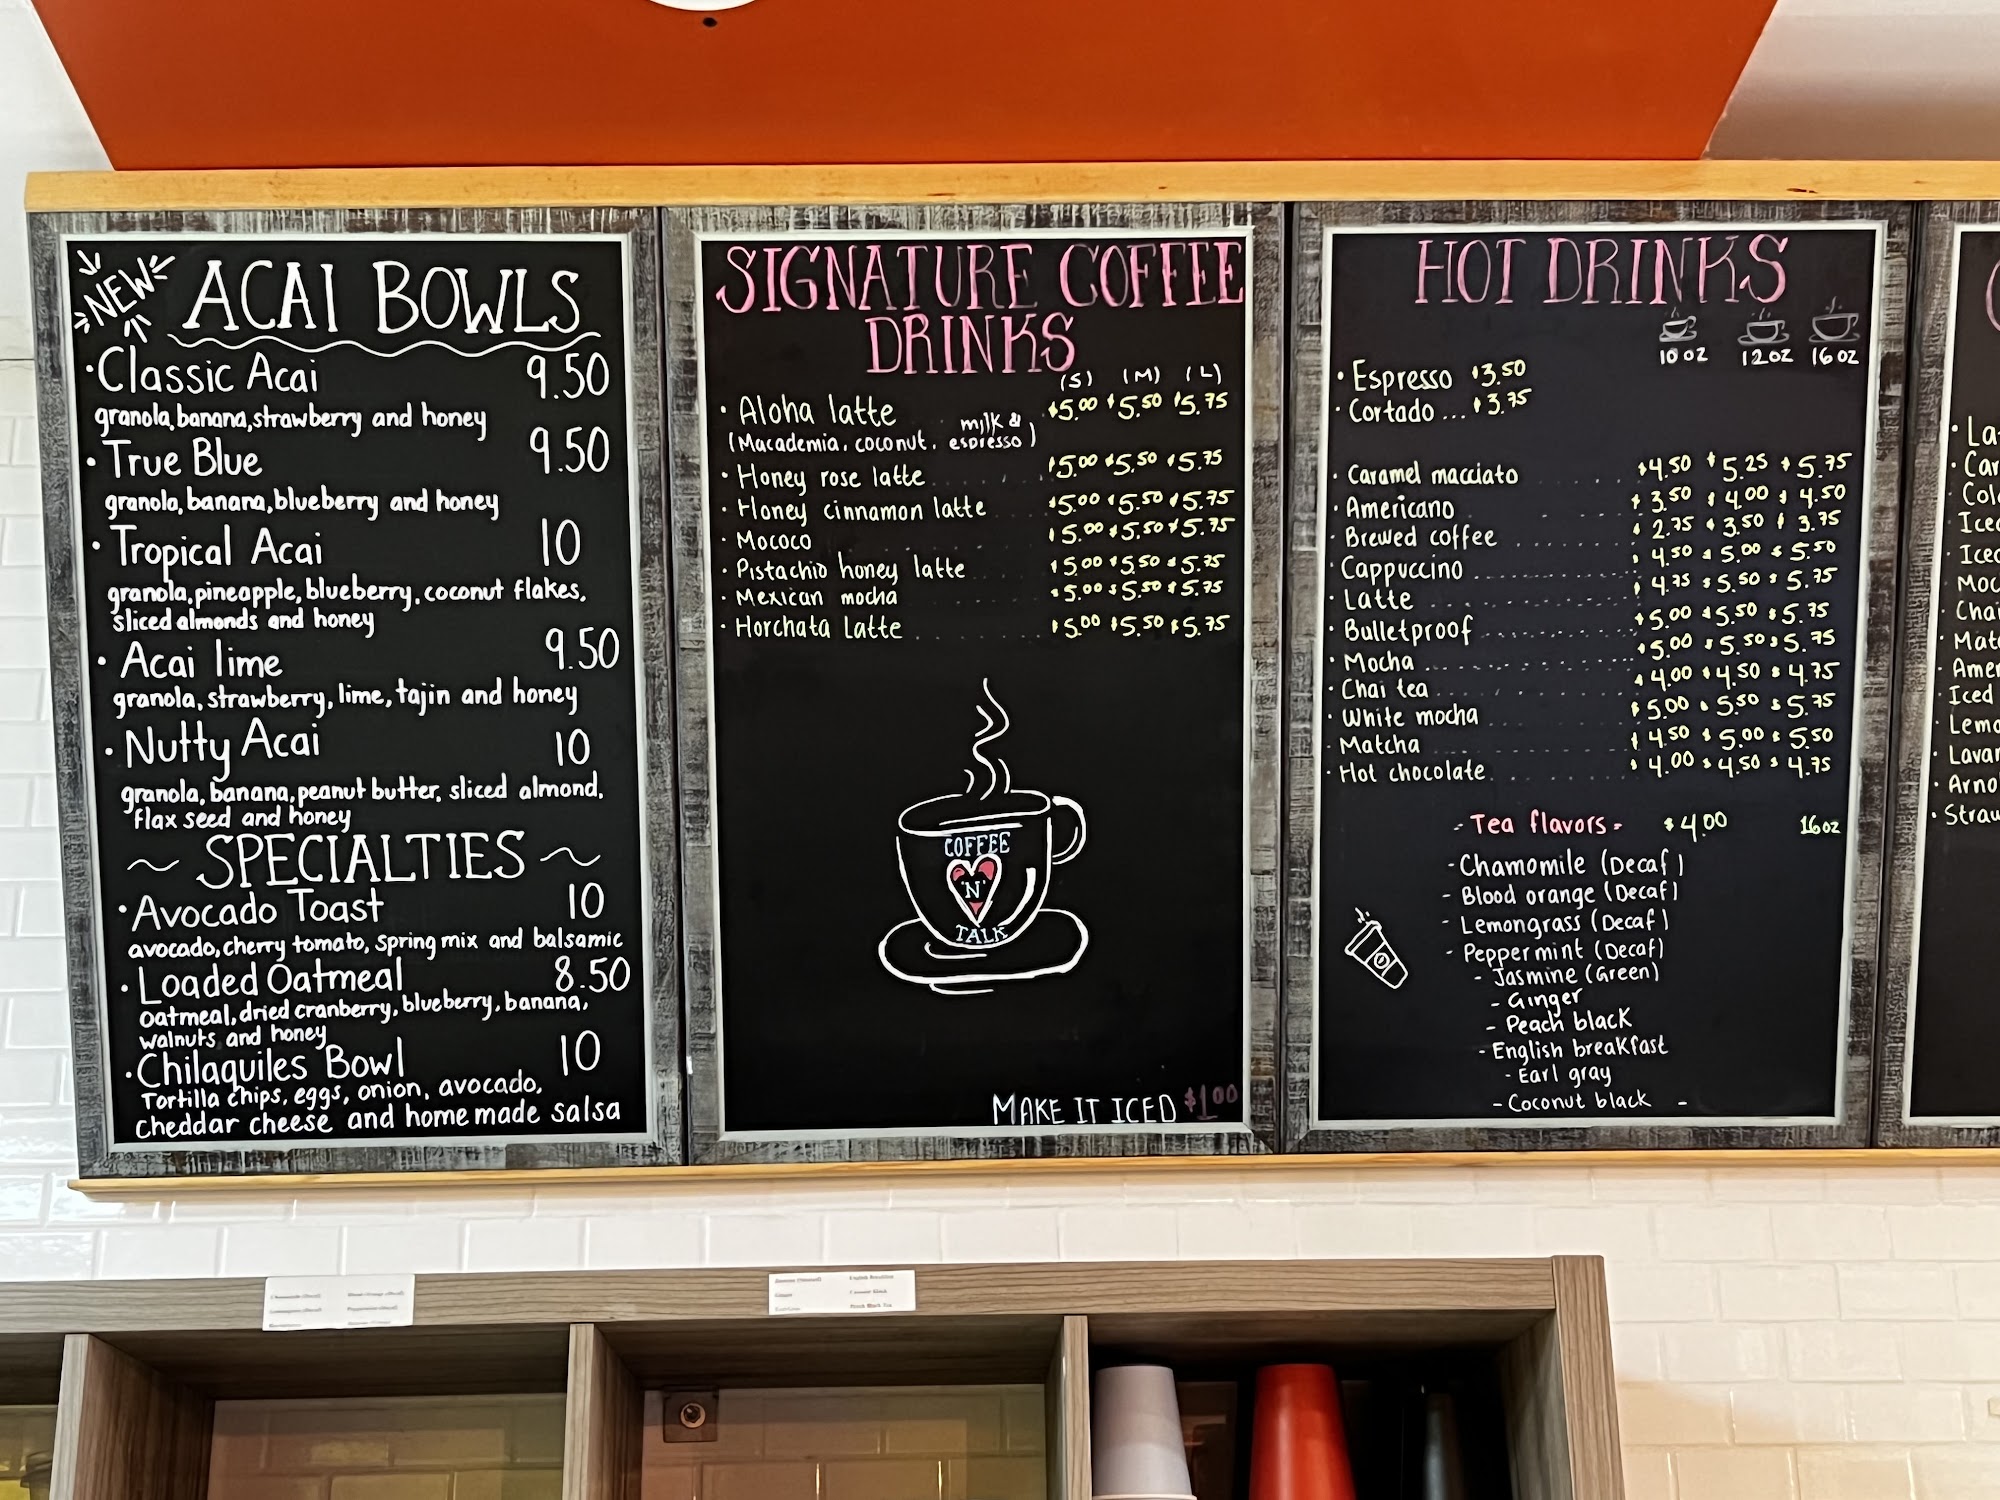 NEW
ACAI BOWLS
· Classic Acai 9.50
granola, banana, strawberry and honey
· True Blue 9.50
granola, banana, blueberry and honey
· Tropical Acai 10
granola, pineapple, blueberry, coconut flakes,
sliced almonds and honey
· Acai lime 9.50
granola, strawberry, lime, tajin and honey
· Nutty Acai 10
granola, banana, peanut butter, sliced almond,
flax seed and honey
~ SPECIALTIES ~
· Avocado Toast 10
avocado, cherry tomato, spring mix and balsamic
· Loaded Oatmeal 8.50
oatmeal, dried cranberry, blueberry, banana,
walnuts and honey
· Chilaquiles Bowl 10
Tortilla chips, eggs, onion, avocado,
cheddar cheese and home made salsa
SIGNATURE COFFEE
DRINKS
(S) (M) (L)
· Aloha latte $5.00 $5.50 $5.75
(Macademia, coconut, milk & espresso)
· Honey rose latte $5.00 $5.50 $5.75
· Honey cinnamon latte $5.00 $5.50 $5.75
· Mococo $5.00 $5.50 $5.75
· Pistachio honey latte $5.00 $5.50 $5.75
· Mexican mocha $5.00 $5.50 $5.75
· Horchata Latte $5.00 $5.50 $5.75
COFFEE
'N'
TALK
MAKE IT ICED $1.00
HOT DRINKS
10 oz 12 oz 16 oz
· Espresso $3.50
· Cortado ... $3.75
· Caramel macciato $4.50 $5.25 $5.75
· Americano $3.50 $4.00 $4.50
· Brewed coffee $2.75 $3.50 $3.75
· Cappuccino $4.50 $5.00 $5.50
· Latte $4.75 $5.50 $5.75
· Bulletproof $5.00 $5.50 $5.75
· Mocha $5.00 $5.50 $5.75
· Chai tea $4.00 $4.50 $4.75
· White mocha $5.00 $5.50 $5.75
· Matcha $4.50 $5.00 $5.50
· Hot chocolate $4.00 $4.50 $4.75
- Tea flavors - $4.00 16oz
- Chamomile (Decaf)
- Blood orange (Decaf)
- Lemongrass (Decaf)
- Peppermint (Decaf)
- Jasmine (Green)
- Ginger
- Peach black
- English breakfast
- Earl gray
- Coconut black -
· Iced